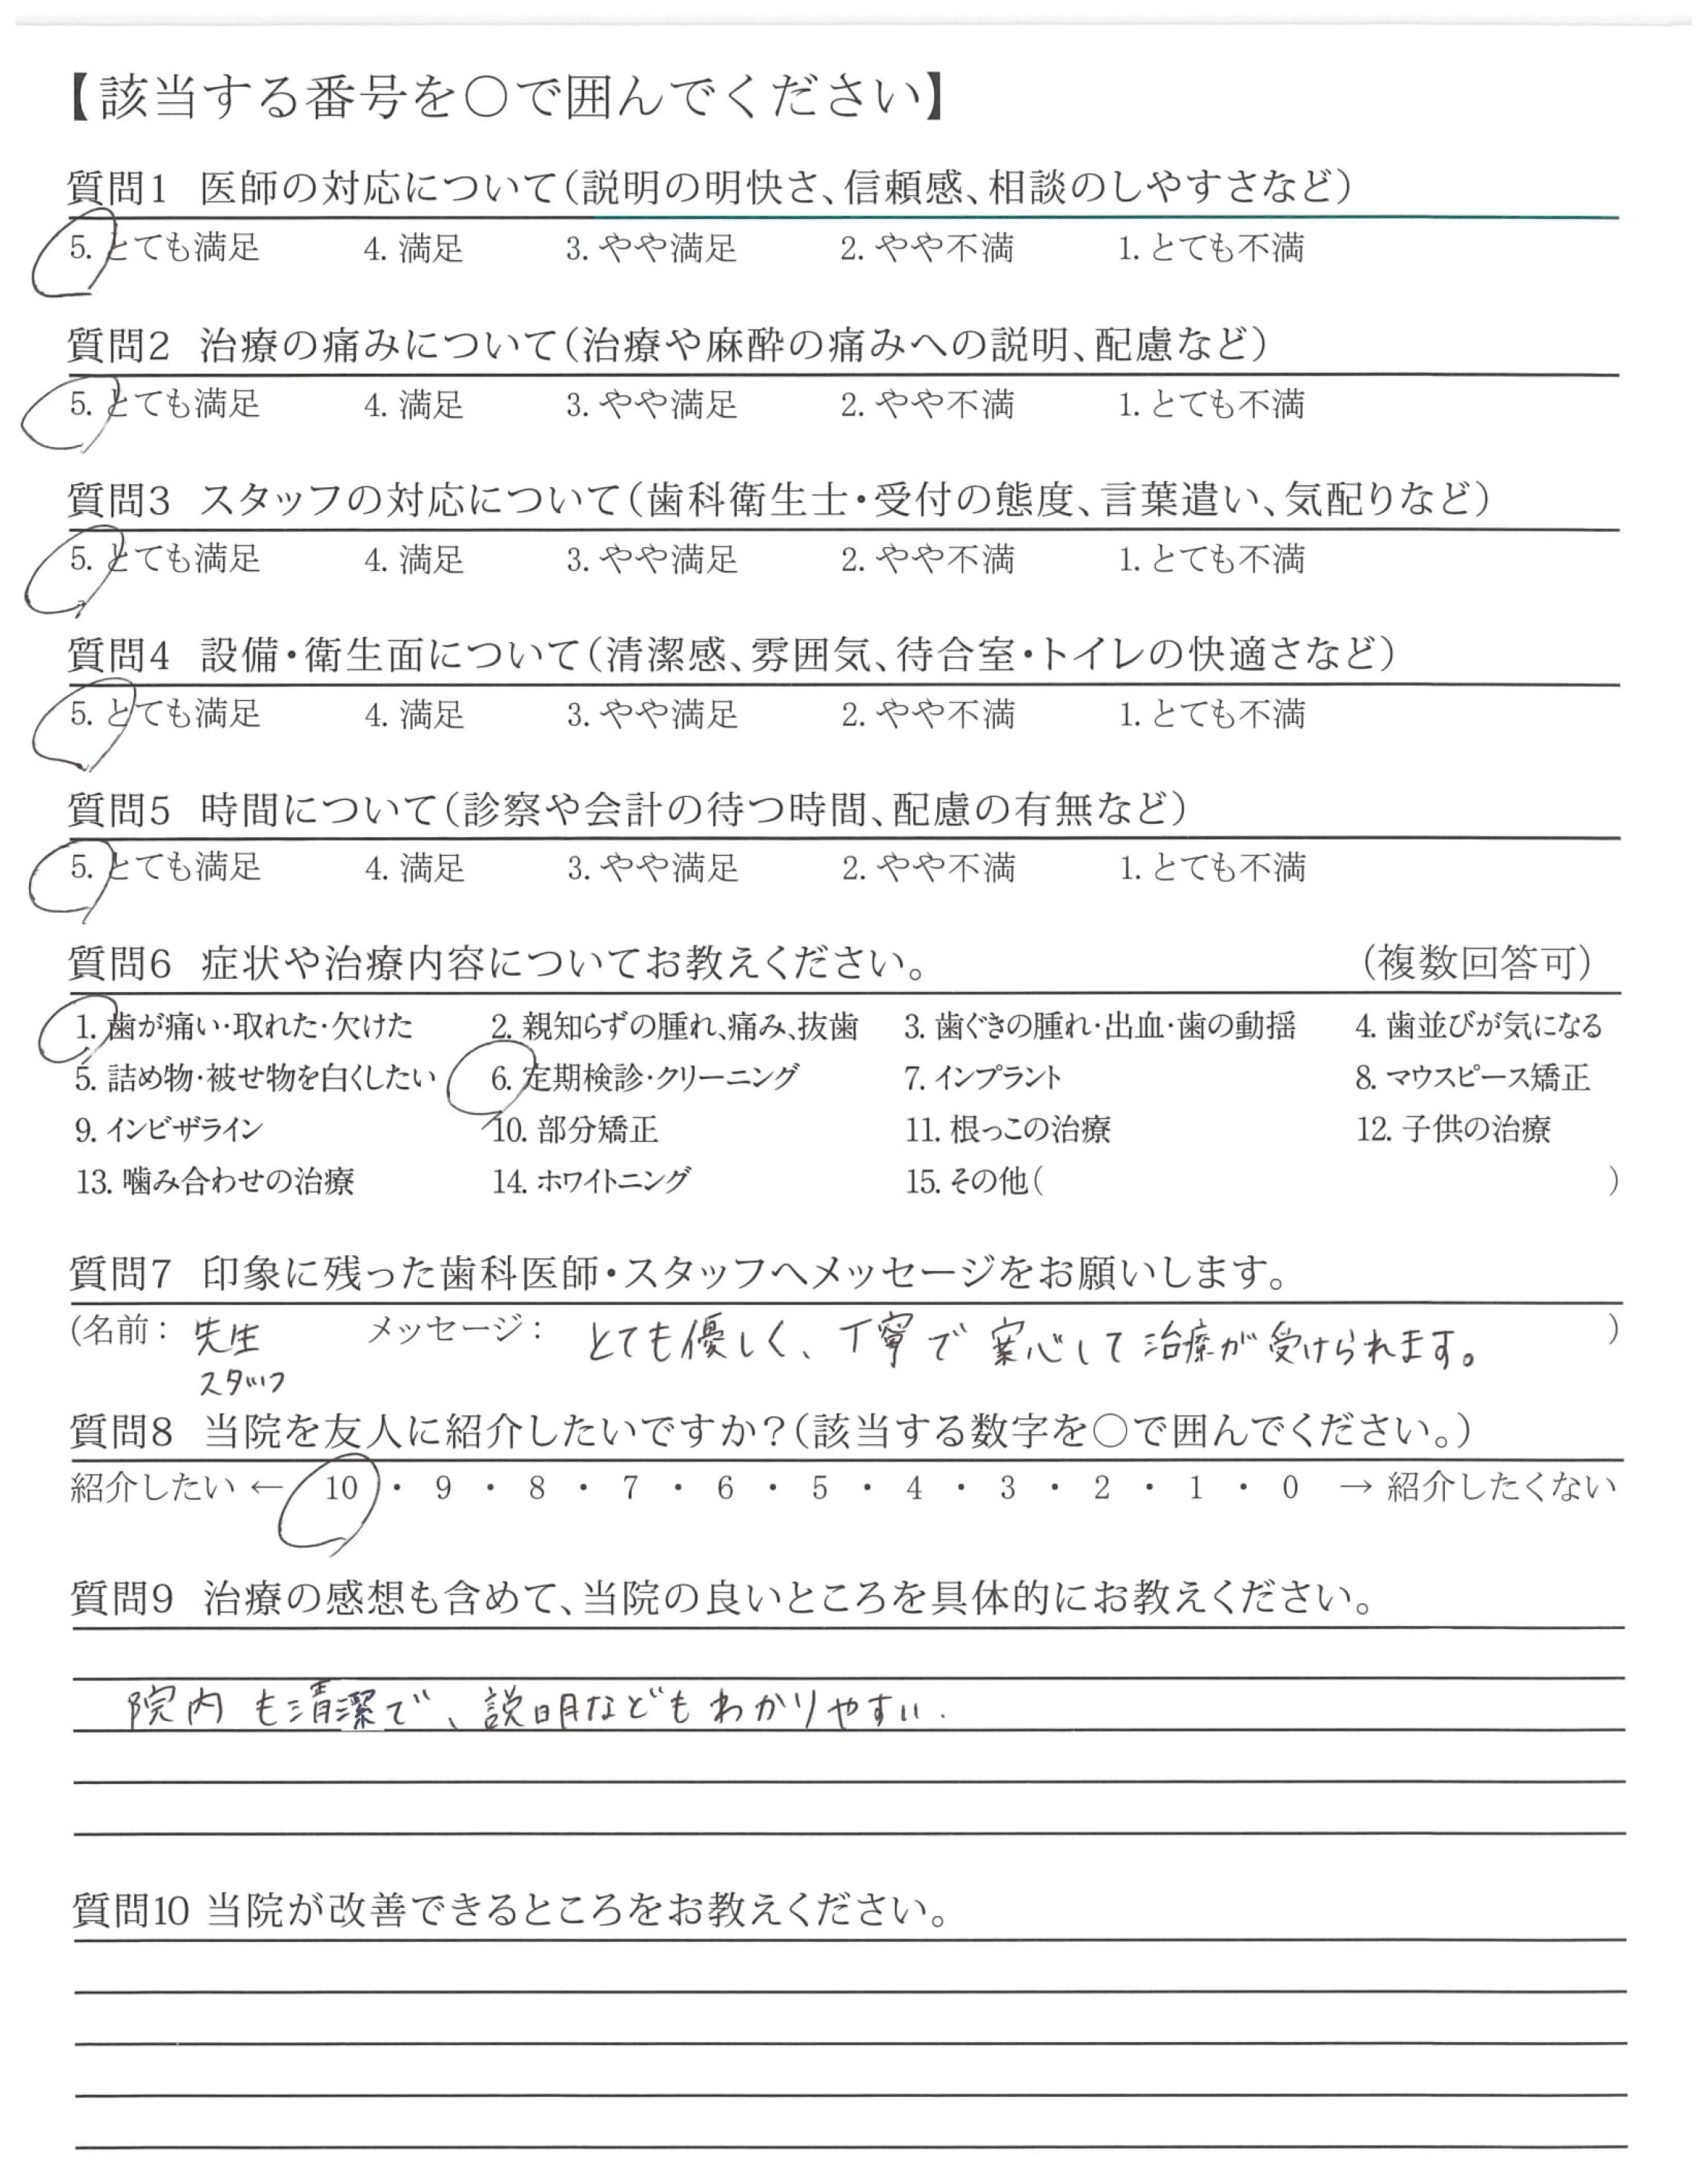 【該当する番号を○で囲んでください】
質問1 医師の対応について(説明の明快さ、信頼感、相談のしやすさなど)
5. とても満足 4. 満足 3. やや満足 2. やや不満 1. とても不満
質問2 治療の痛みについて(治療や麻酔の痛みへの説明、配慮など)
5. とても満足 4. 満足 3. やや満足 2. やや不満 1. とても不満
質問3 スタッフの対応について(歯科衛生士・受付の態度、言葉遣い、気配りなど)
5. とても満足 4. 満足 3. やや満足 2. やや不満 1. とても不満
質問4 設備・衛生面について(清潔感、雰囲気、待合室・トイレの快適さなど)
5. とても満足 4. 満足 3. やや満足 2. やや不満 1. とても不満
質問5 時間について(診察や会計の待つ時間、配慮の有無など)
5. とても満足 4. 満足 3. やや満足 2. やや不満 1. とても不満
質問6 症状や治療内容についてお教えください。 (複数回答可)
1. 歯が痛い・取れた・欠けた 2. 親知らずの腫れ、痛み、抜歯 3. 歯ぐきの腫れ・出血・歯の動揺 4. 歯並びが気になる
5. 詰め物・被せ物を白くしたい 6. 定期検診・クリーニング 7. インプラント 8. マウスピース矯正
9. インビザライン 10. 部分矯正 11. 根っこの治療 12. 子供の治療
13. 噛み合わせの治療 14. ホワイトニング 15. その他( )
質問7 印象に残った歯科医師・スタッフへメッセージをお願いします。
(名前: 先生 メッセージ: とても優しく、丁寧で安心して治療が受けられます。 )
スタッフ
質問8 当院を友人に紹介したいですか?(該当する数字を○で囲んでください。)
紹介したい ← 10 ・ 9 ・ 8 ・ 7 ・ 6 ・ 5 ・ 4 ・ 3 ・ 2 ・ 1 ・ 0 → 紹介したくない
質問9 治療の感想も含めて、当院の良いところを具体的にお教えください。
院内も清潔で、説明などもわかりやすい.
質問10 当院が改善できるところをお教えください。